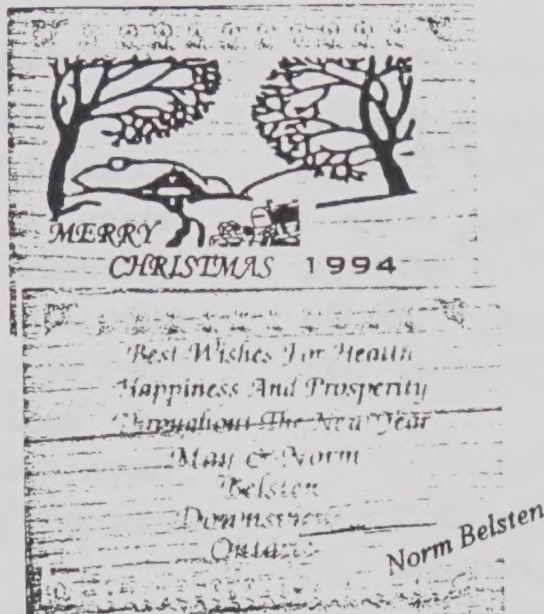 MERRY
CHRISTMAS 1994
Best Wishes For Health
Happiness And Prosperity
Throughout The New Year
May & Norm
Belsten
Downsview
Ontario
Norm Belsten